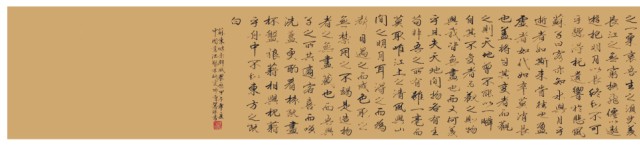 之一粟哀吾生之須臾羨
長江之無窮挾飛仙以遨
遊抱明月而長終知不可
乎驟得托遺響於悲風
蘇子曰客亦知水與月乎
逝者如斯而未嘗往也盈
虛者如彼而卒莫消長
也蓋將自其變者而觀
之則天地曾不能以一瞬
自其不變者而觀之則物
與我皆無盡也而又何羨
乎且夫天地間物各有主
苟非吾之所有雖一毫而
莫取惟江上之清風與山
間之明月耳得之而為
聲目遇之而成色取之
無禁用之不竭是造物
者之無盡藏也而吾與
子之所共適客喜而笑
洗盞更酌肴核既盡
杯盤狼藉相與枕藉
乎舟中不知東方之既
白